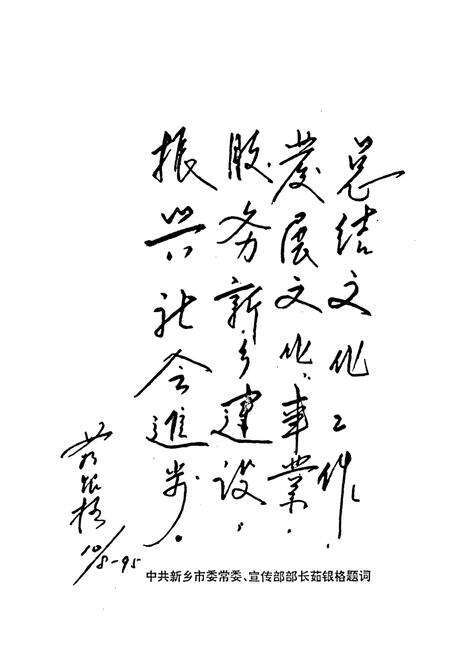 总结文化工作
發展文化事業.
服务新乡建設.
振兴社会進步.
茹银格
10/8-95
中共新乡市委常委、宣传部部长茹银格题词